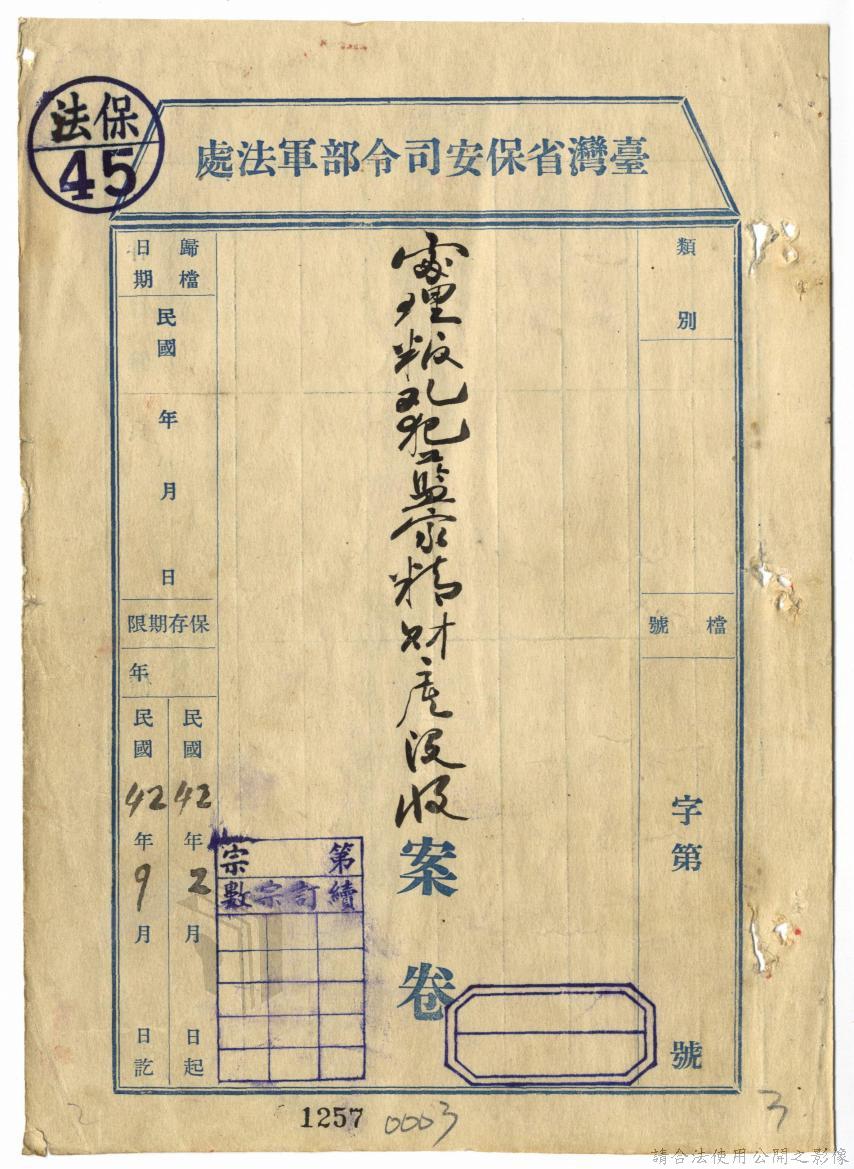 保法
45
臺灣省保安司令部軍法處
類別
檔號
字第
號
處理叛乱犯藍家精財產沒收
案卷
歸檔日期
民國
年
月
日
保存期限
年
民國42年2月
日起
民國42年9月
日訖
第宗
續訂宗數
1257
0003
3
2
請合法使用公開之影像